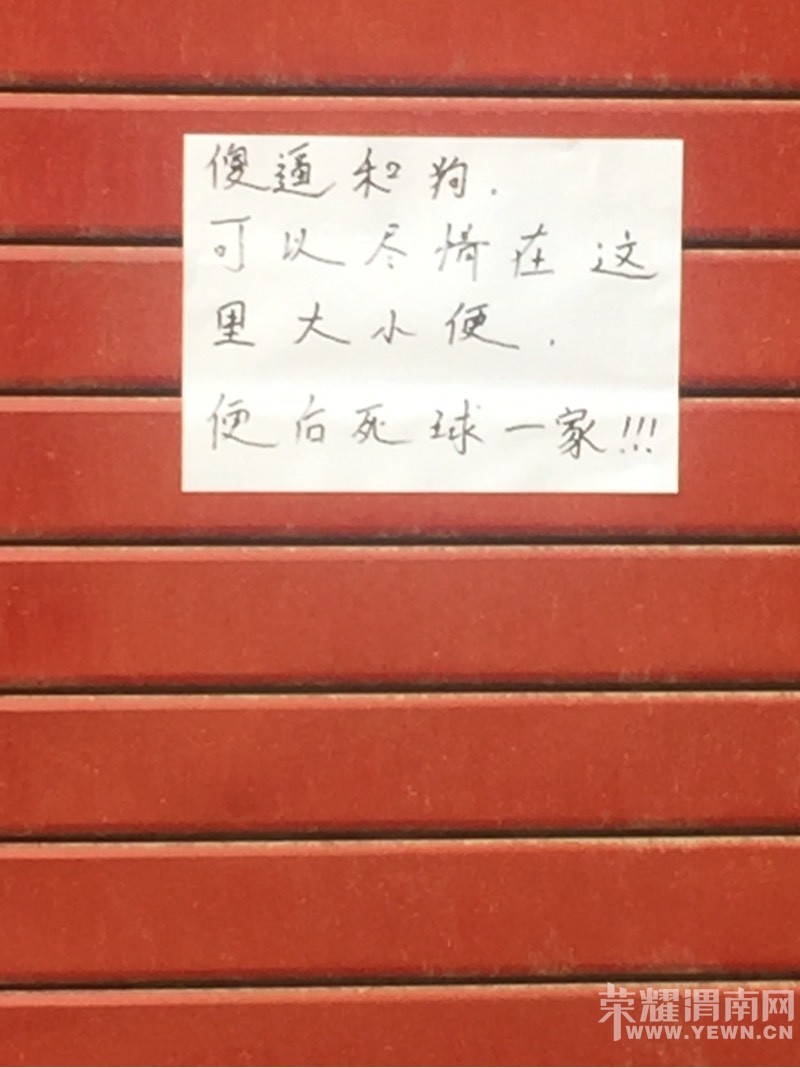 傻逼和狗.
可以尽情在这
里大小便.
便后死球一家!!!
荣耀渭南网
WWW.YEWN.CN